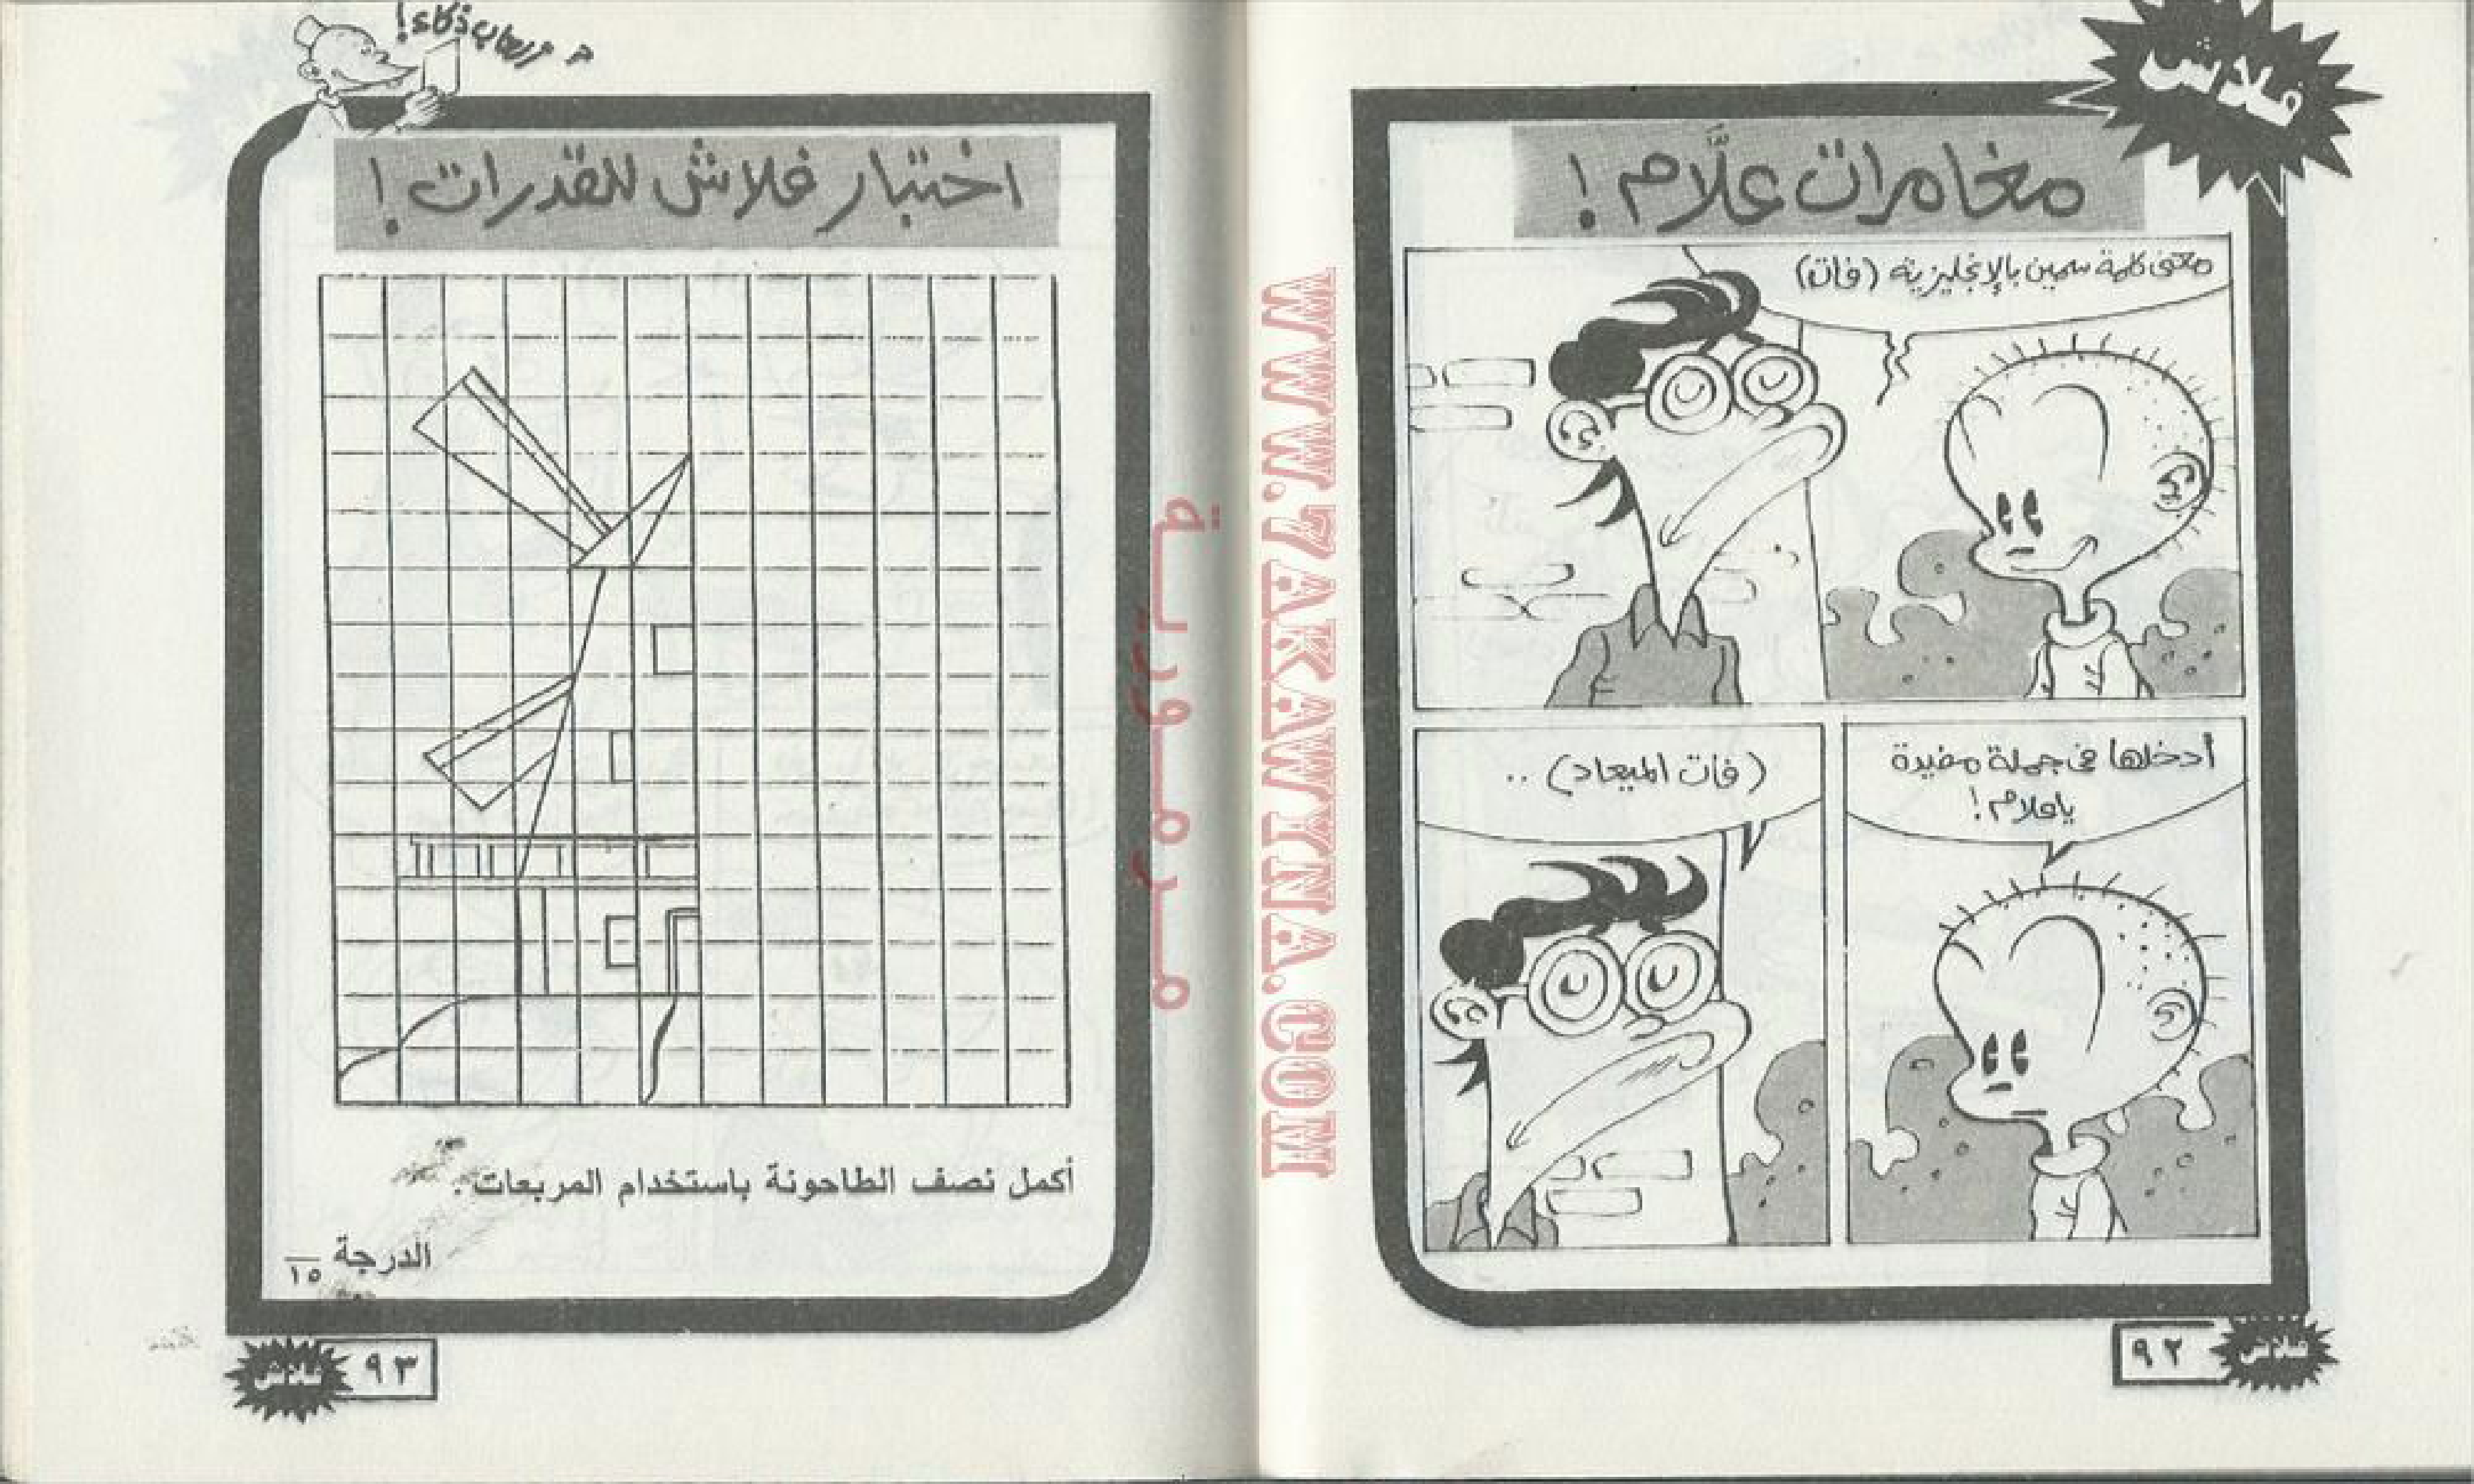 فلاش
مغامرات علَّام !
معنى كلمة سمين بالإنجليزية (فات)
أدخلها في جملة مفيدة
ياعلام !
(فات الميعاد) ..
٩٢
فلاش
WWW.7AKAWITNA.COM
مـرمـوريـة
ذكاء !
اختبار فلاش للقدرات !
أكمل نصف الطاحونة باستخدام المربعات .
الدرجة ١٥
فلاش
٩٣